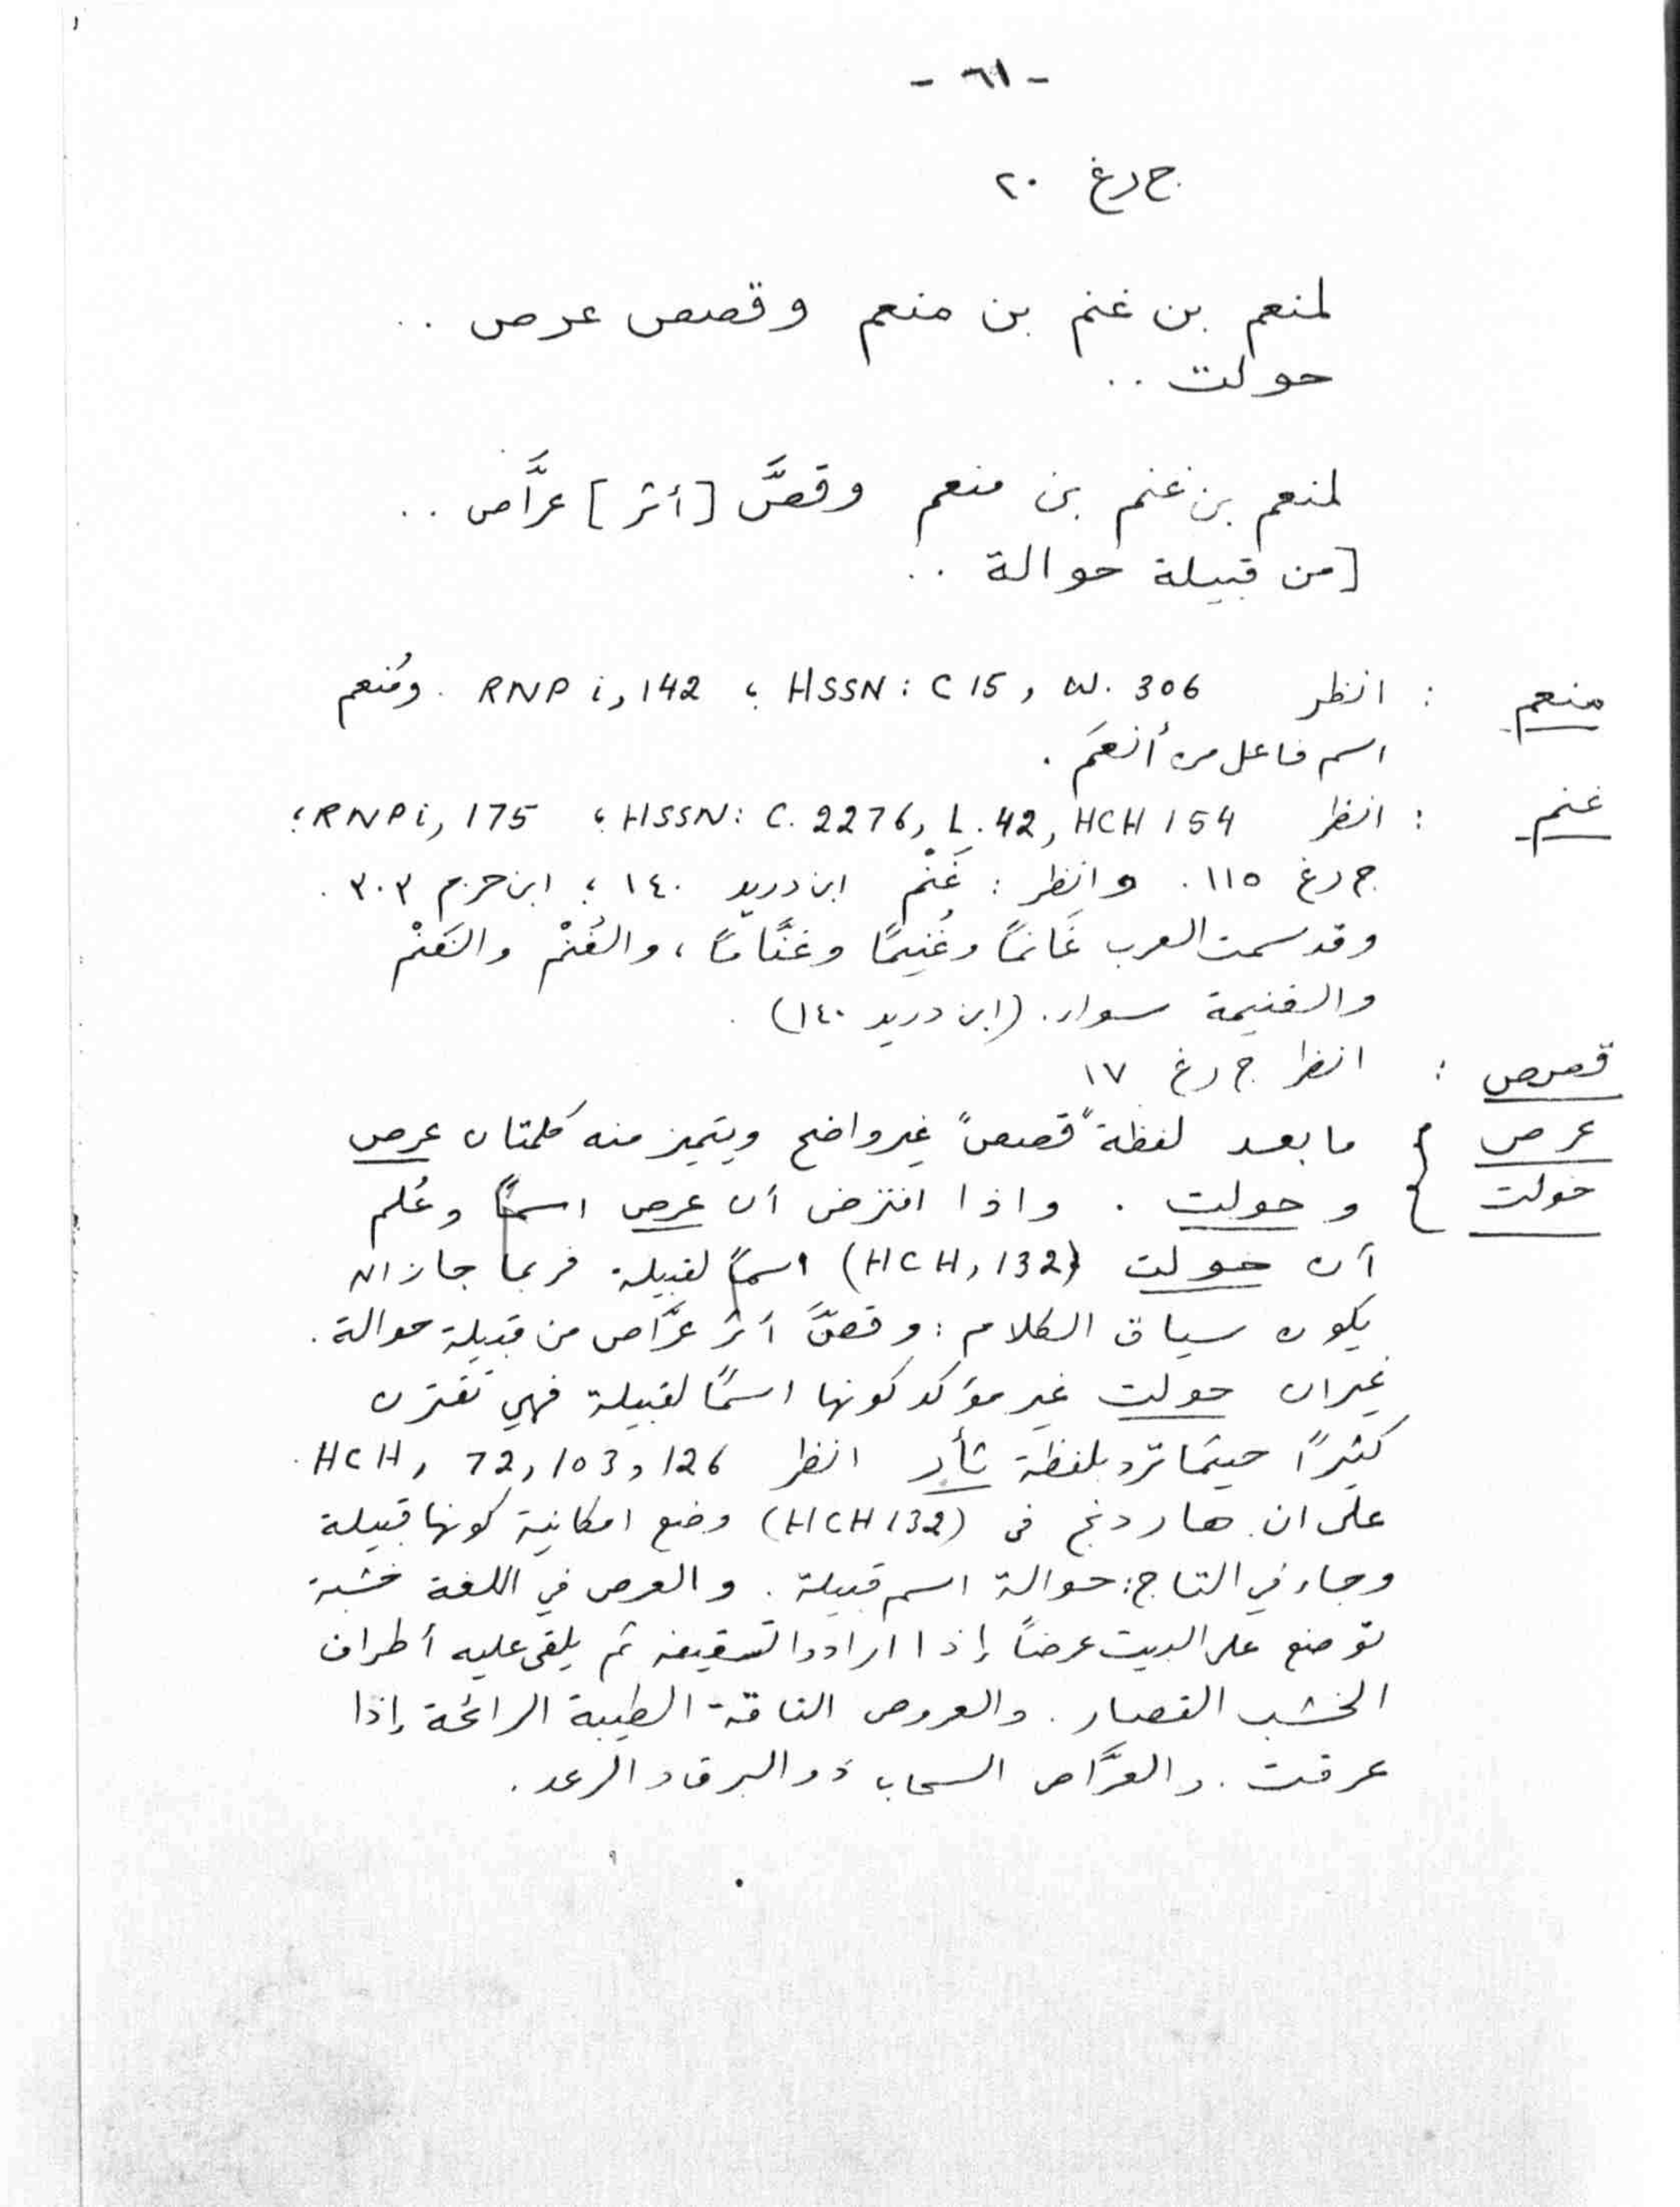 - ٦١ -
ج رغ ٢٠
لمنعم بن غنم بن منعم وقصص عرص ..
حولت ..
لمنعم بن غنم بن منعم وقصَّ [أثر] عرَّاص ..
[من قبيلة حوالة ..
منعم : انظر HSSN : C 15, W. 306 ؛ RNP i, 142 . ومُنعم
اسم فاعل من أنعَم .
غنم : انظر HSSN : C. 2276, L. 42, HCH 154 ؛ RNP i, 175 ؛
ج رغ ١١٥ . وانظر : غَنْم ابن دريد ١٤٠ ؛ ابن حزم ٣٠٣ .
وقد سمت العرب غَانمًا وغُنيمًا وغنَّامًا ، والغُنْم والغَنْم
والغنيمة سواء . (ابن دريد ١٤٠) .
قصص : انظر ج رغ ١٧
عرص } ما بعد لفظة "قصص" غير واضح ويتميز منه كلمتان عرص
حولت } و حولت . واذا افترض أن عرص اسمًا وعُلم
أن حولت (HCH, 132) اسمًا لقبيلة فربما جاز ان
يكون سياق الكلام : وقصَّ أثر عرَّاص من قبيلة حوالة .
غير ان حولت غير مؤكد كونها اسمًا لقبيلة فهي تقترن
كثيرًا حيثما ترد بلفظة ثأر انظر HCH, 72, 103, 126 .
على ان هاردنج في (HCH 132) وضع امكانية كونها قبيلة
وجاء في التاج : حوالة اسم قبيلة . والعرص في اللغة خشبة
توضع على البيت عرضًا إذا ارادوا تسقيفه ثم يلقى عليه أطراف
الخشب القصار . والعروص الناقة الطيبة الرائحة إذا
عرقت . والعرَّاص السحاب ذو البرق والرعد .